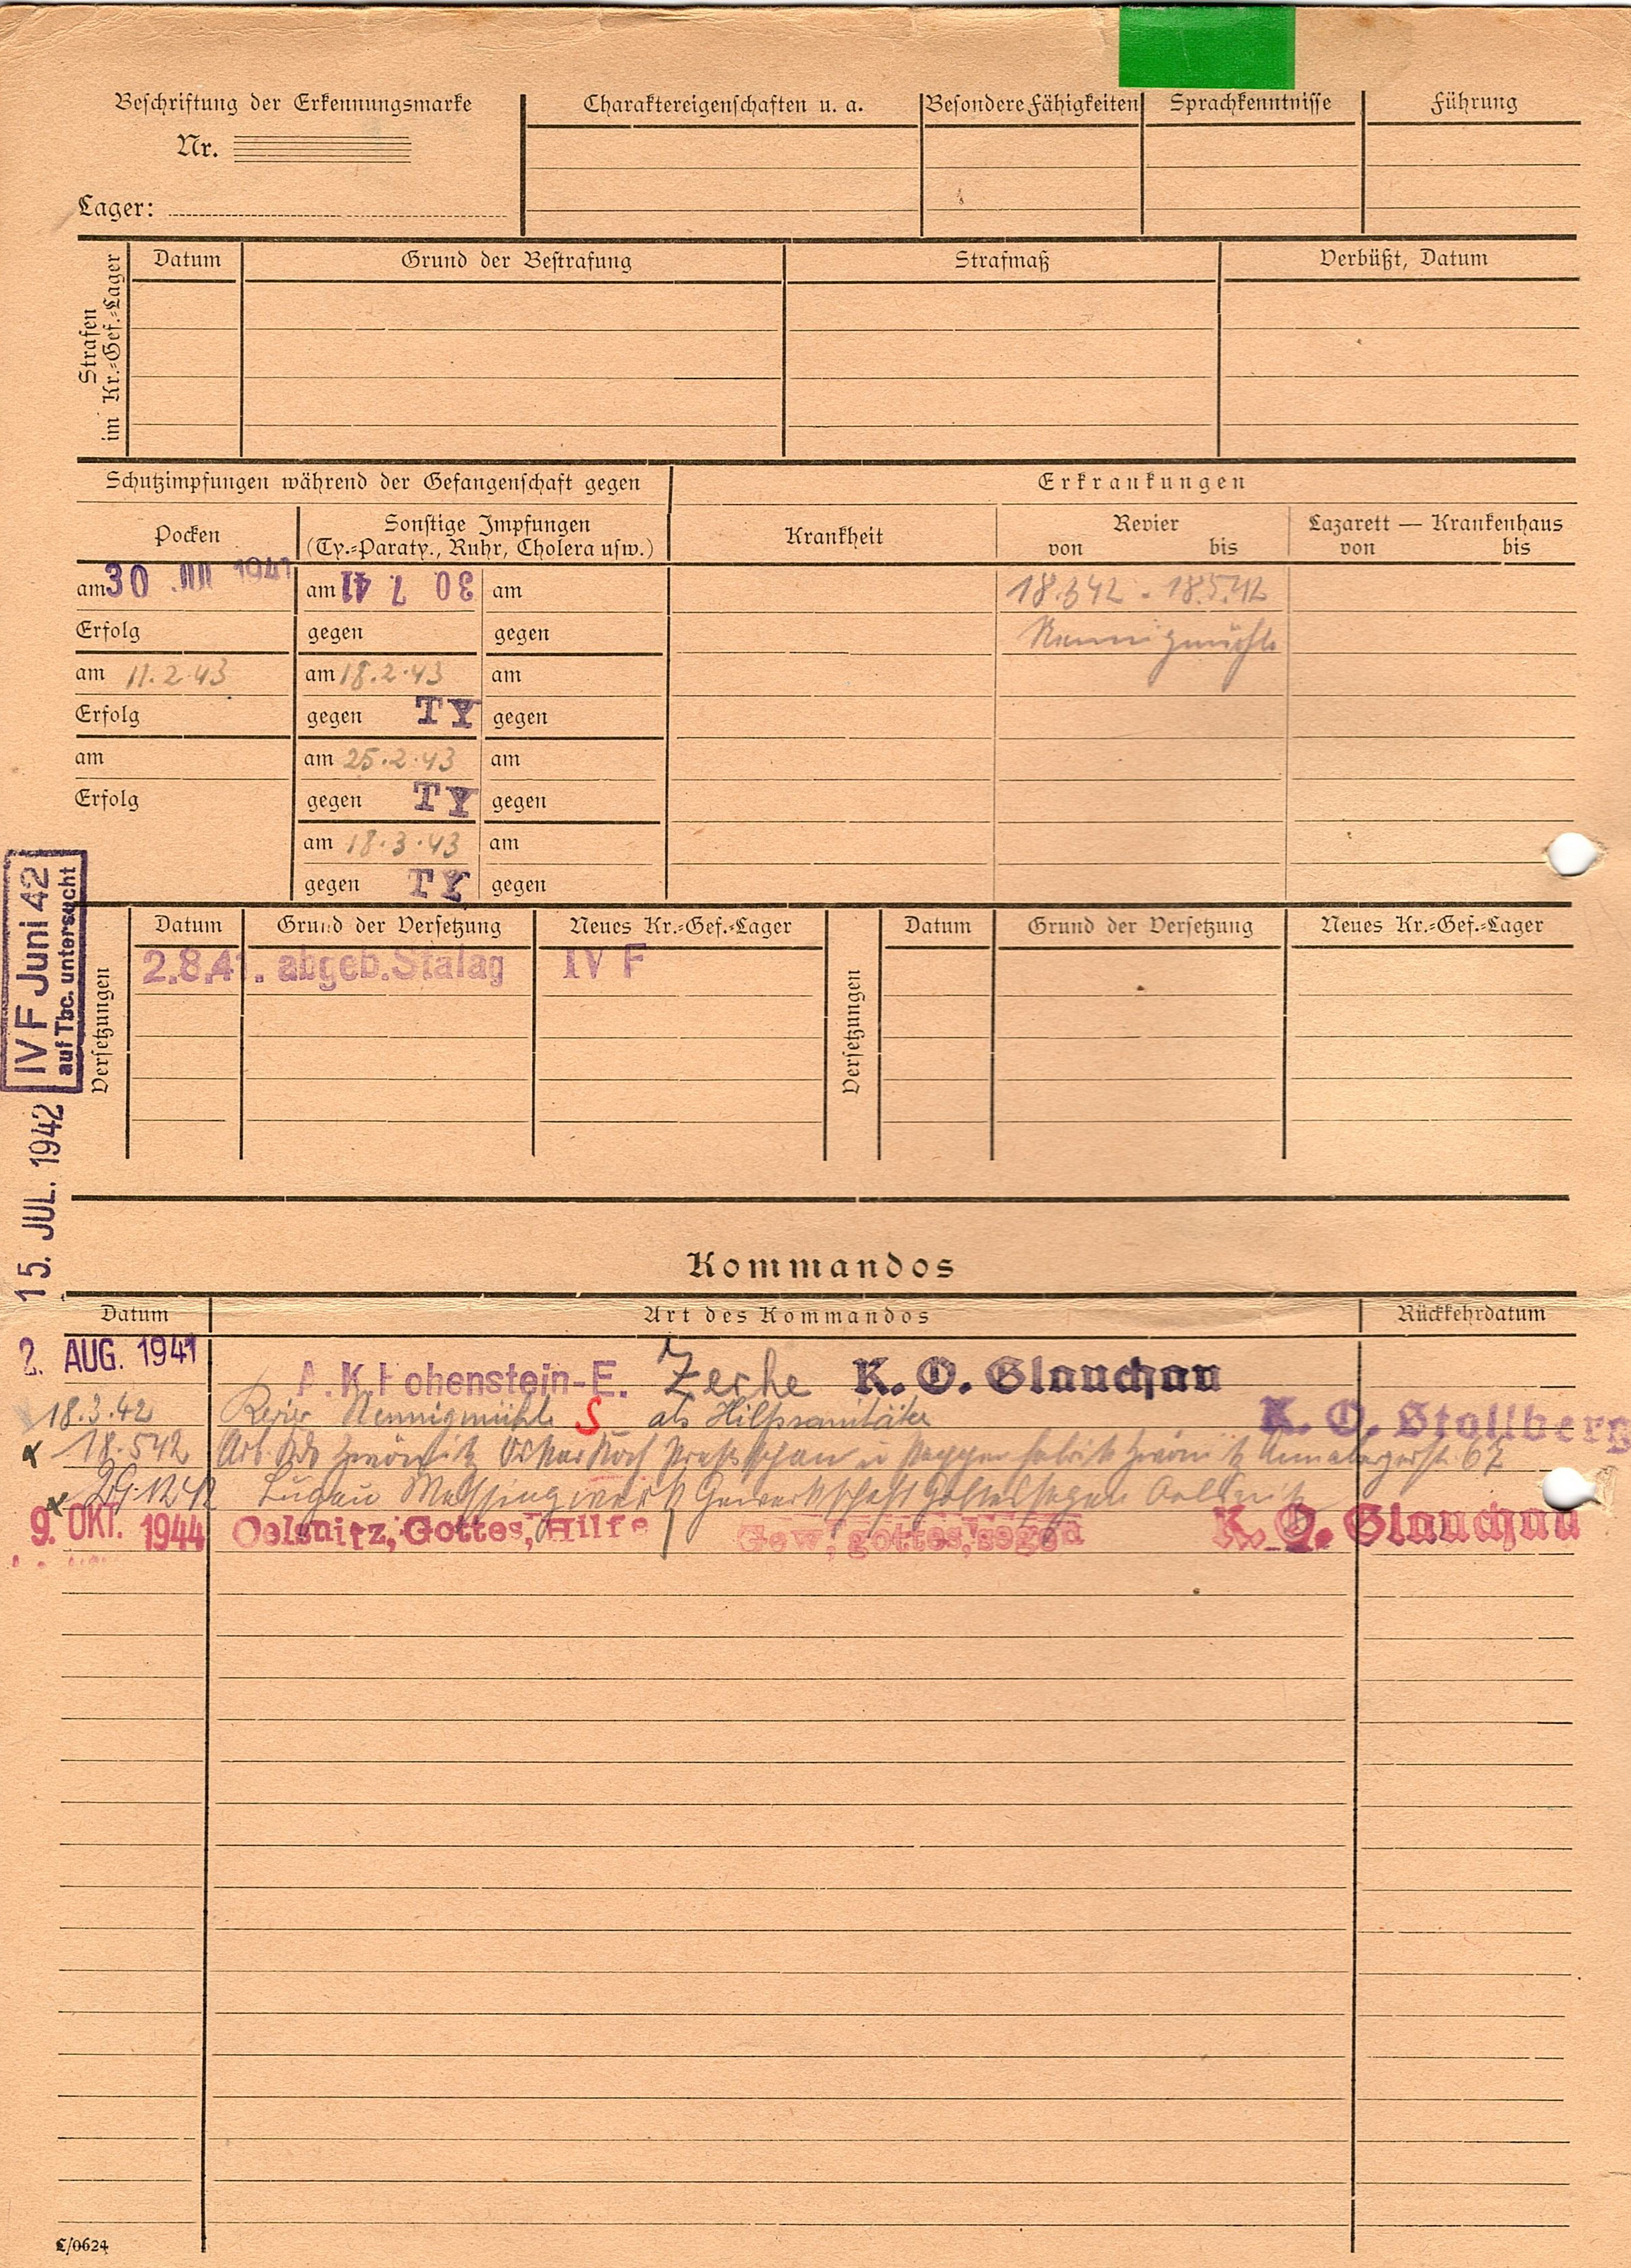 Beschriftung der Erkennungsmarke
Nr.
Lager:
Charaktereigenschaften u. a.
Besondere Fähigkeiten
Sprachkenntnisse
Führung
Strafen
im Kr.=Gef.=Lager
Datum
Grund der Bestrafung
Strafmaß
Verbüßt, Datum
Schutzimpfungen während der Gefangenschaft gegen
Erkrankungen
Pocken
Sonstige Impfungen
(Ty.=Paraty., Ruhr, Cholera usw.)
Krankheit
Revier
von bis
Lazarett — Krankenhaus
von bis
am 30 JUI 1941
am 30 7 41
am
18.3 42 - 18.5.42
Erfolg
gegen
gegen
am 11.2.43
am 18.2.43
am
Erfolg
gegen TY
gegen
am
am 25.2.43
am
Erfolg
gegen TY
gegen
am 18.3.43
am
gegen TY
gegen
IV F Juni 42
auf Tbc. untersucht
15. JUL. 1942
Versetzungen
Datum
Grund der Versetzung
Neues Kr.=Gef.=Lager
2.8.41. abgeb. Stalag IV F
Versetzungen
Datum
Grund der Versetzung
Neues Kr.=Gef.=Lager
Kommandos
Datum
Art des Kommandos
Rückkehrdatum
2. AUG. 1941 A. K. Hohenstein-E. Zeche K. O. Glauchau
18.3.42 Revier S als Hilfssanitäter K. O. Stollberg
x 18.5 42 Arb. Kdo Zwönitz Oskar Koch u Pappenfabrik Zwönitz 67
x 29.12 42 Lugau Messingwerk Gewerkschaft Gottessegen Oelsnitz
9. OKT. 1944 Oelsnitz, Gottes, Hilfe Gew, gottes, segen K. O. Glauchau
L/0624